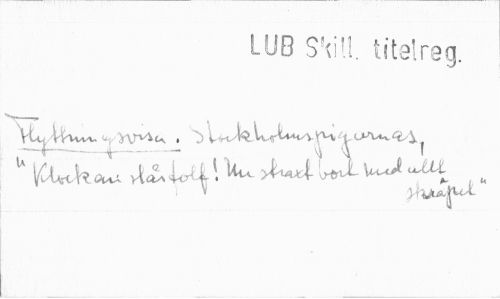 LUB Skill. titelreg.
Flyttningsvisa. Stockholmspigornas,
"Klockan slår tolf! Nu straxt bort med allt
skräpet"